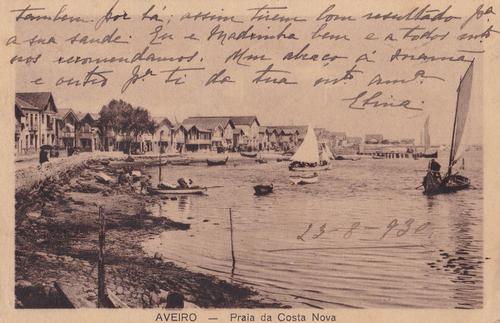 também por lá; assim tirem bom resultado pª
a sua saude. Eu e Madrinha bem e a todos mto
nos recomendamos. Um abraço á Mamã
e outro pª ti da tua mtº amª.
23-8-930
AVEIRO — Praia da Costa Nova